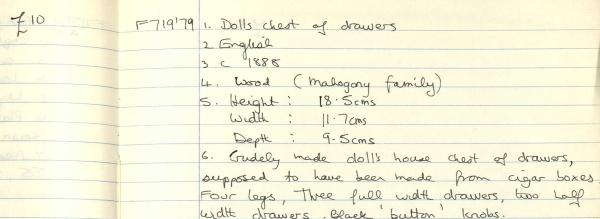 £10 F719'79 1. Dolls chest of drawers
2 English
3 c 1885
4. Wood (Mahogany family)
5. Height : 18.5cms
Width : 11.7cms
Depth : 9.5cms
6. Crudely made doll's house chest of drawers,
supposed to have been made from cigar boxes
Four legs, Three full width drawers, two half
width drawers. Black 'button' knobs.